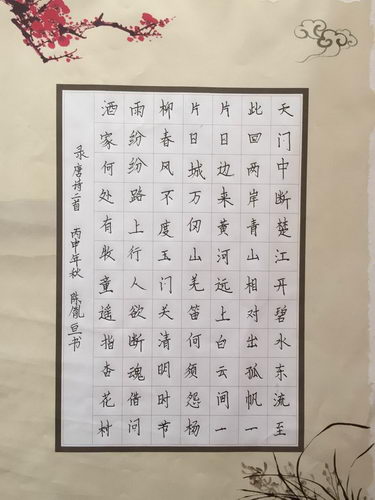 天门中断楚江开碧水东流至
此回两岸青山相对出孤帆一
片日边来黄河远上白云间一
片日城万仞山羌笛何须怨杨
柳春风不度玉门关清明时节
雨纷纷路上行人欲断魂借问
酒家何处有牧童遥指杏花村
录唐诗二首 丙申年秋 陈 书